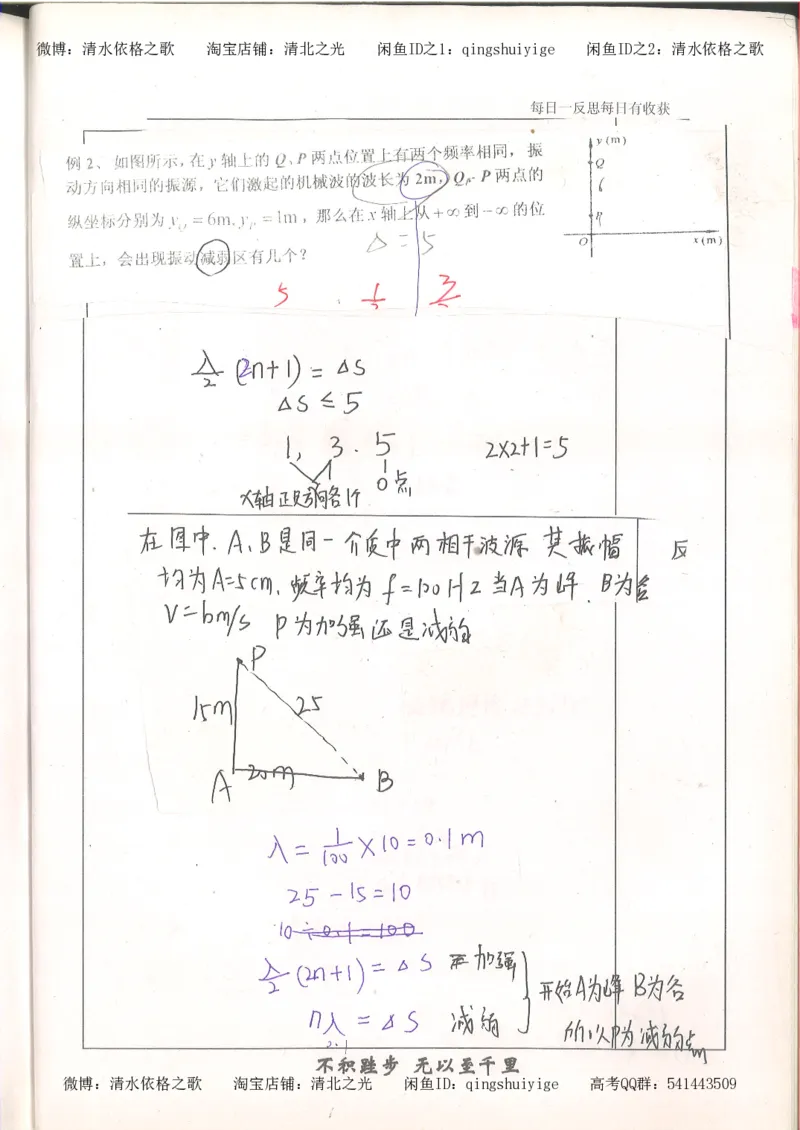 微博：清水依格之歌 淘宝店铺：清北之光 闲鱼ID之1：qingshuiyige 闲鱼ID之2：清水依格之歌
每日一反思每日有收获
例 2、如图所示，在 y 轴上的 Q、P 两点位置上有两个频率相同，振
动方向相同的振源，它们激起的机械波的波长为 2m，Q、P 两点的
纵坐标分别为 y = 6m, y = 1m，那么在 x 轴上从 +∞ 到 −∞ 的位
置上，会出现振动减弱区有几个？
Δ = 5
y (m)
Q
O
x (m)
5
λ/2 (2n+1) = ΔS
ΔS ≤ 5
1, 3. 5
2×2+1=5
0点
在图中. A、B是同一介质中两相干波源 其振幅
均为A=5cm, 频率均为 f=100HZ 当A为峰. B为谷
P为加强还是减弱
反
P
15m
25
A
20m
B
λ = 1/100 × 10 = 0.1m
25 - 15 = 10
10 ÷ 0.1 = 100
λ/2 (2n+1) = ΔS 加强
nλ = ΔS 减弱
开始A为峰 B为谷
所以P为减弱点
不积跬步 无以至千里
微博：清水依格之歌 淘宝店铺：清北之光 闲鱼ID：qingshuiyige 高考QQ群：541443509